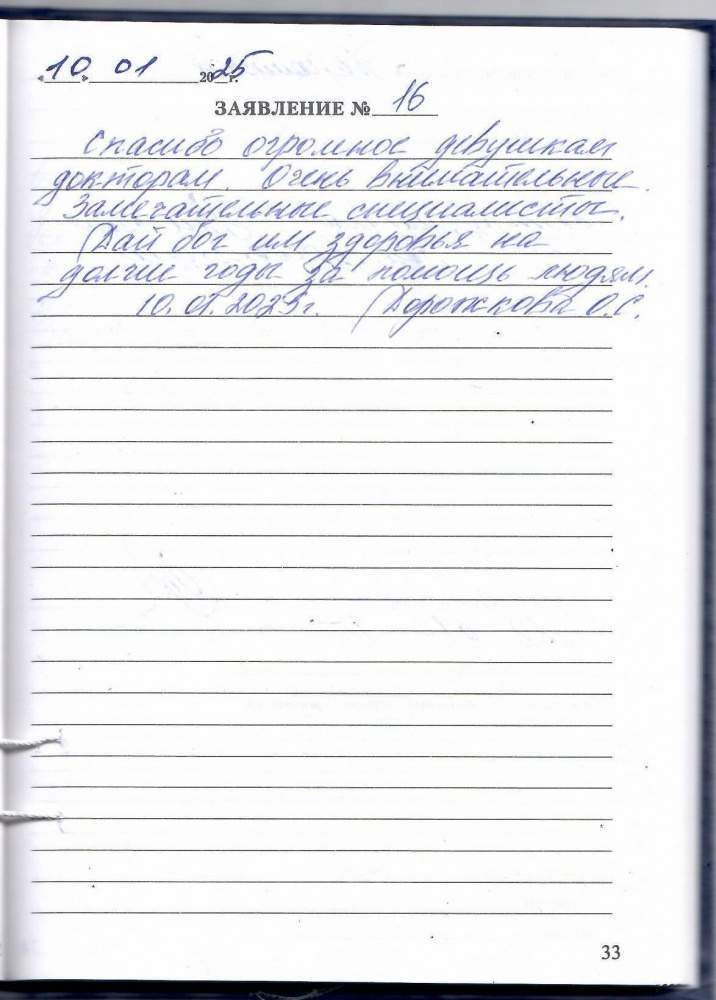 «10» 01 2025 г.
ЗАЯВЛЕНИЕ № 16
Спасибо огромное девушкам
докторам. Очень внимательные.
Замечательные специалисты.
Дай бог им здоровья на
долгие годы за помощь людям.
10.01.2025г. Дорожкова О.С.
33